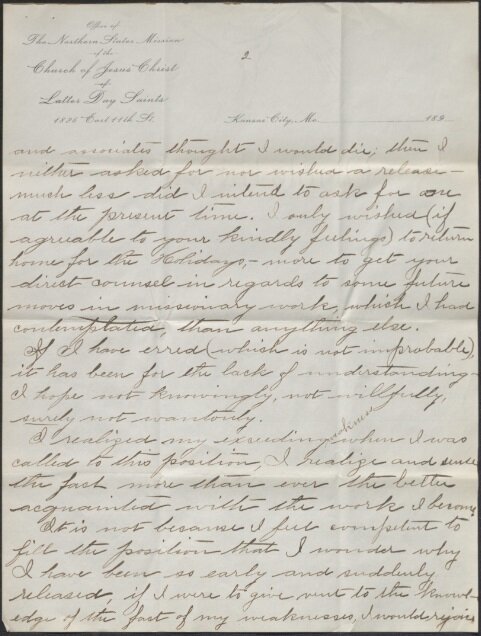 Office of
The Northern States Mission
of the
Church of Jesus Christ
of
Latter Day Saints
1825 East 11th St.
2
Kansas City, Mo. 189
and associates thought I would die; then I
neither asked for nor wished a release—
much less did I intend to ask for one
at the present time. I only wished (if
agreeable to your kindly feelings) to return
home for the Holidays,— more to get your
direct counsel in regards to some future
moves in missionary work, which I had
contemplated, than anything else.
If I have erred (which is not improbable),
it has been for the lack of understanding—
I hope not knowingly, not willfully,
surely not wantonly.
I realized my exceeding weakness when I was
called to this position, I realize and sense
the fact more than ever the better
acquainted with the work I become.
It is not because I feel competent to
fill the position that I wonder why
I have been so early and suddenly
released, if I were to give vent to the knowl-
edge of the fact of my weaknesses, I would rejoice